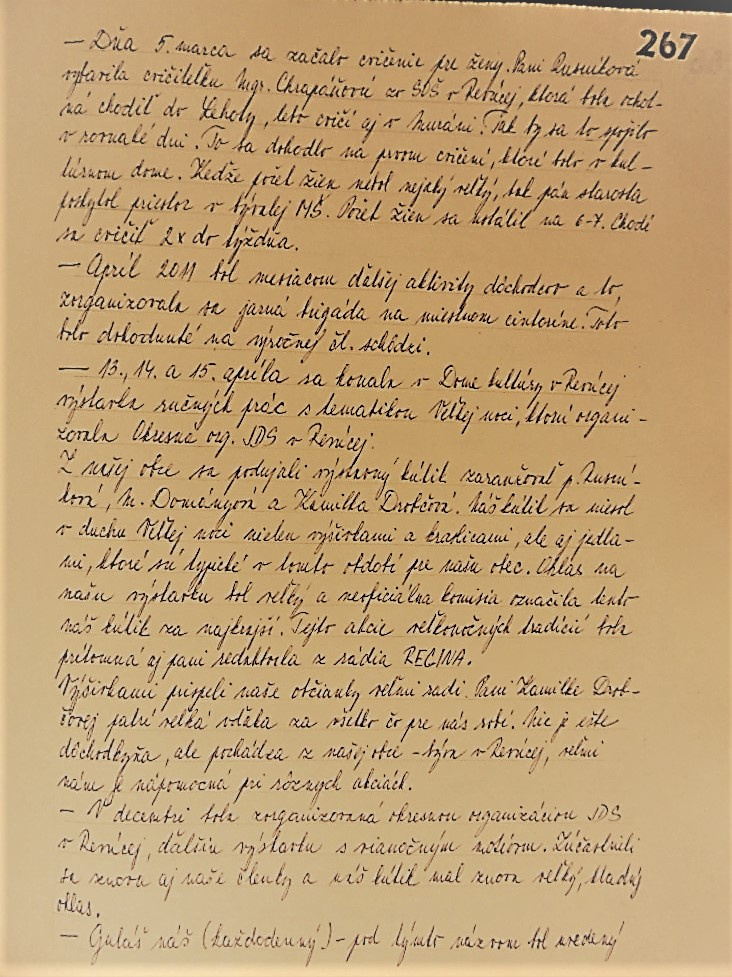 267
— Dňa 5. marca sa začalo cvičenie pre ženy. Pani Rusnáková
vybavila cvičiteľku Mgr. Chrapáňovú zo SOŠ v Revúcej, ktorá bola ochot-
ná chodiť do Lehoty, lebo cvičí aj v Muráni. Tak by sa to spojilo
v rovnaké dni. To sa dohodlo na prvom cvičení, ktoré bolo v kul-
túrnom dome. Keďže počet žien nebol nejaký veľký, tak pán starosta
poskytol priestor v bývalej MŠ. Počet žien sa ustálil na 6-7. Chodí
sa cvičiť 2x do týždňa.
— Apríl 2011 bol mesiacom ďalšej aktivity dôchodcov a to,
zorganizovala sa jarná brigáda na miestnom cintoríne. Toto
bolo dohodnuté na výročnej čl. schôdzi.
— 13., 14. a 15. apríla sa konala v Dome kultúry v Revúcej
výstavka ručných prác s tematikou Veľkej noci, ktorú organi-
zovala Okresná org. JDS v Revúcej.
Z našej obce sa podujali výstavný kútik zaranžovať p. Rusná-
ková, M. Dományová a Kamilka Drobčová. Náš kútik sa niesol
v duchu Veľkej noci nielen výšivkami a kraslicami, ale aj jedla-
mi, ktoré sú typické v tomto období pre našu obec. Ohlas na
našu výstavku bol veľký a neoficiálna komisia označila tento
náš kútik za najkrajší. Tejto akcie veľkonočných tradícií bola
prítomná aj pani redaktorka z rádia REGINA.
Výšivkami prispeli naše občianky veľmi radi. Pani Kamilke Drob-
čovej patrí veľká vďaka za všetko čo pre nás robí. Nie je ešte
dôchodkyňa, ale pochádza z našej obce - býva v Revúcej, veľmi
nám je nápomocná pri rôznych akciách.
— V decembri bola zorganizovaná okresnou organizáciou JDS
v Revúcej, ďalšia výstavka s vianočným motívom. Zúčastnili
sa znova aj naše členky a náš kútik mal znova veľký, kladný
ohlas.
— Guláš náš (každodenný) - pod týmto názvom bol uvedený